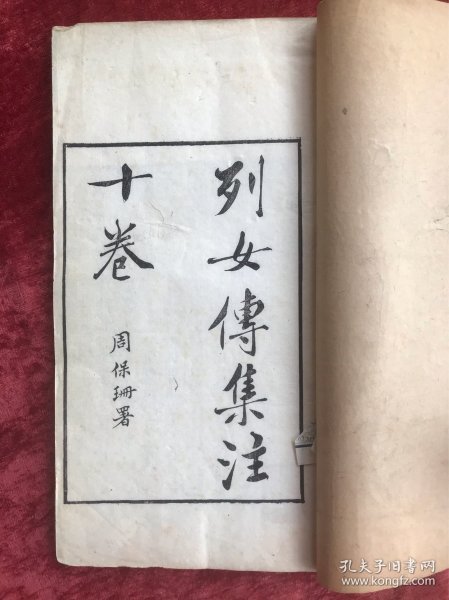 列女傳集注
十卷
周保珊署
孔夫子旧书网
www.kongfz.com